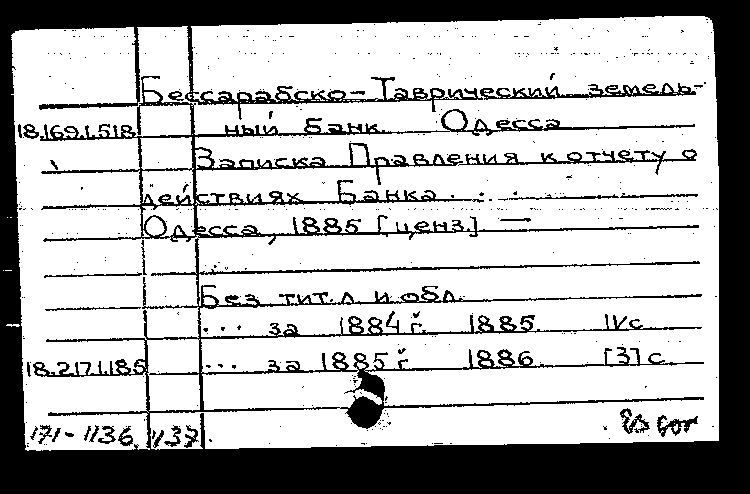 Бессарабско-Таврический земель-
18.169.1.518 ный банк. Одесса
Записка Правления к отчету о
действиях Банка . . .
Одесса, 1885 [ценз.] —
Без тит. л. и обл.
... за 1884 г. 1885. IVс
18.217.1.185 ... за 1885 г. 1886 [3] с.
171-1136, 1137.